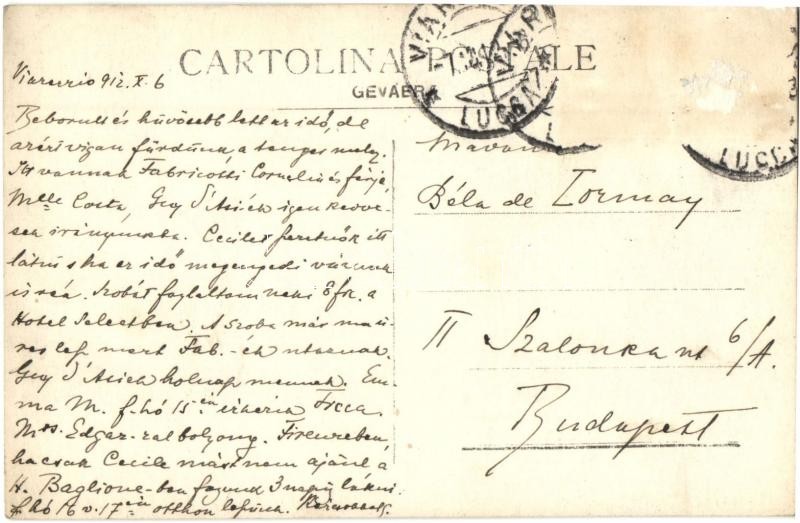 CARTOLINA POSTALE
GEVAERT
VIAR
LUCCA
LUCCA
Viareggio 912. X. 6
Beborult és hüvösebb lett az idő, de
azért vigan fürdünk, a tenger meleg.
Itt vannak Fabricotti Cornelia és férje,
Mlle Costa, Guy D'Asiék igen kedve-
sek irányunkba. Cecilet szeretnők itt
látni s ha az idő megengedi várunk
is reá. Szobát foglaltam neki 8 frc. a
Hotel Selectben. A szoba már ma ü-
res lesz mert Fab.-ék utaznak.
Guy D'Asiék holnap mennek. Em-
ma M. f. hó 15én
Mrs. Edgar-ral bolyong. Firenzében,
ha csak Cecile mást nem ajánl a
H. Baglione-ben fogunk 3 napig lakni
f. hó 16 v. 17én otthon leszünk.
Béla de Tormay
II Szalonka ut 6/A.
Budapest